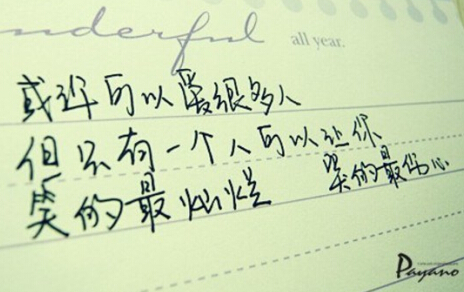 nderful
all year.
或许可以爱很多人
但只有一个人可以让你
笑的最灿烂 哭的最伤心
Payano